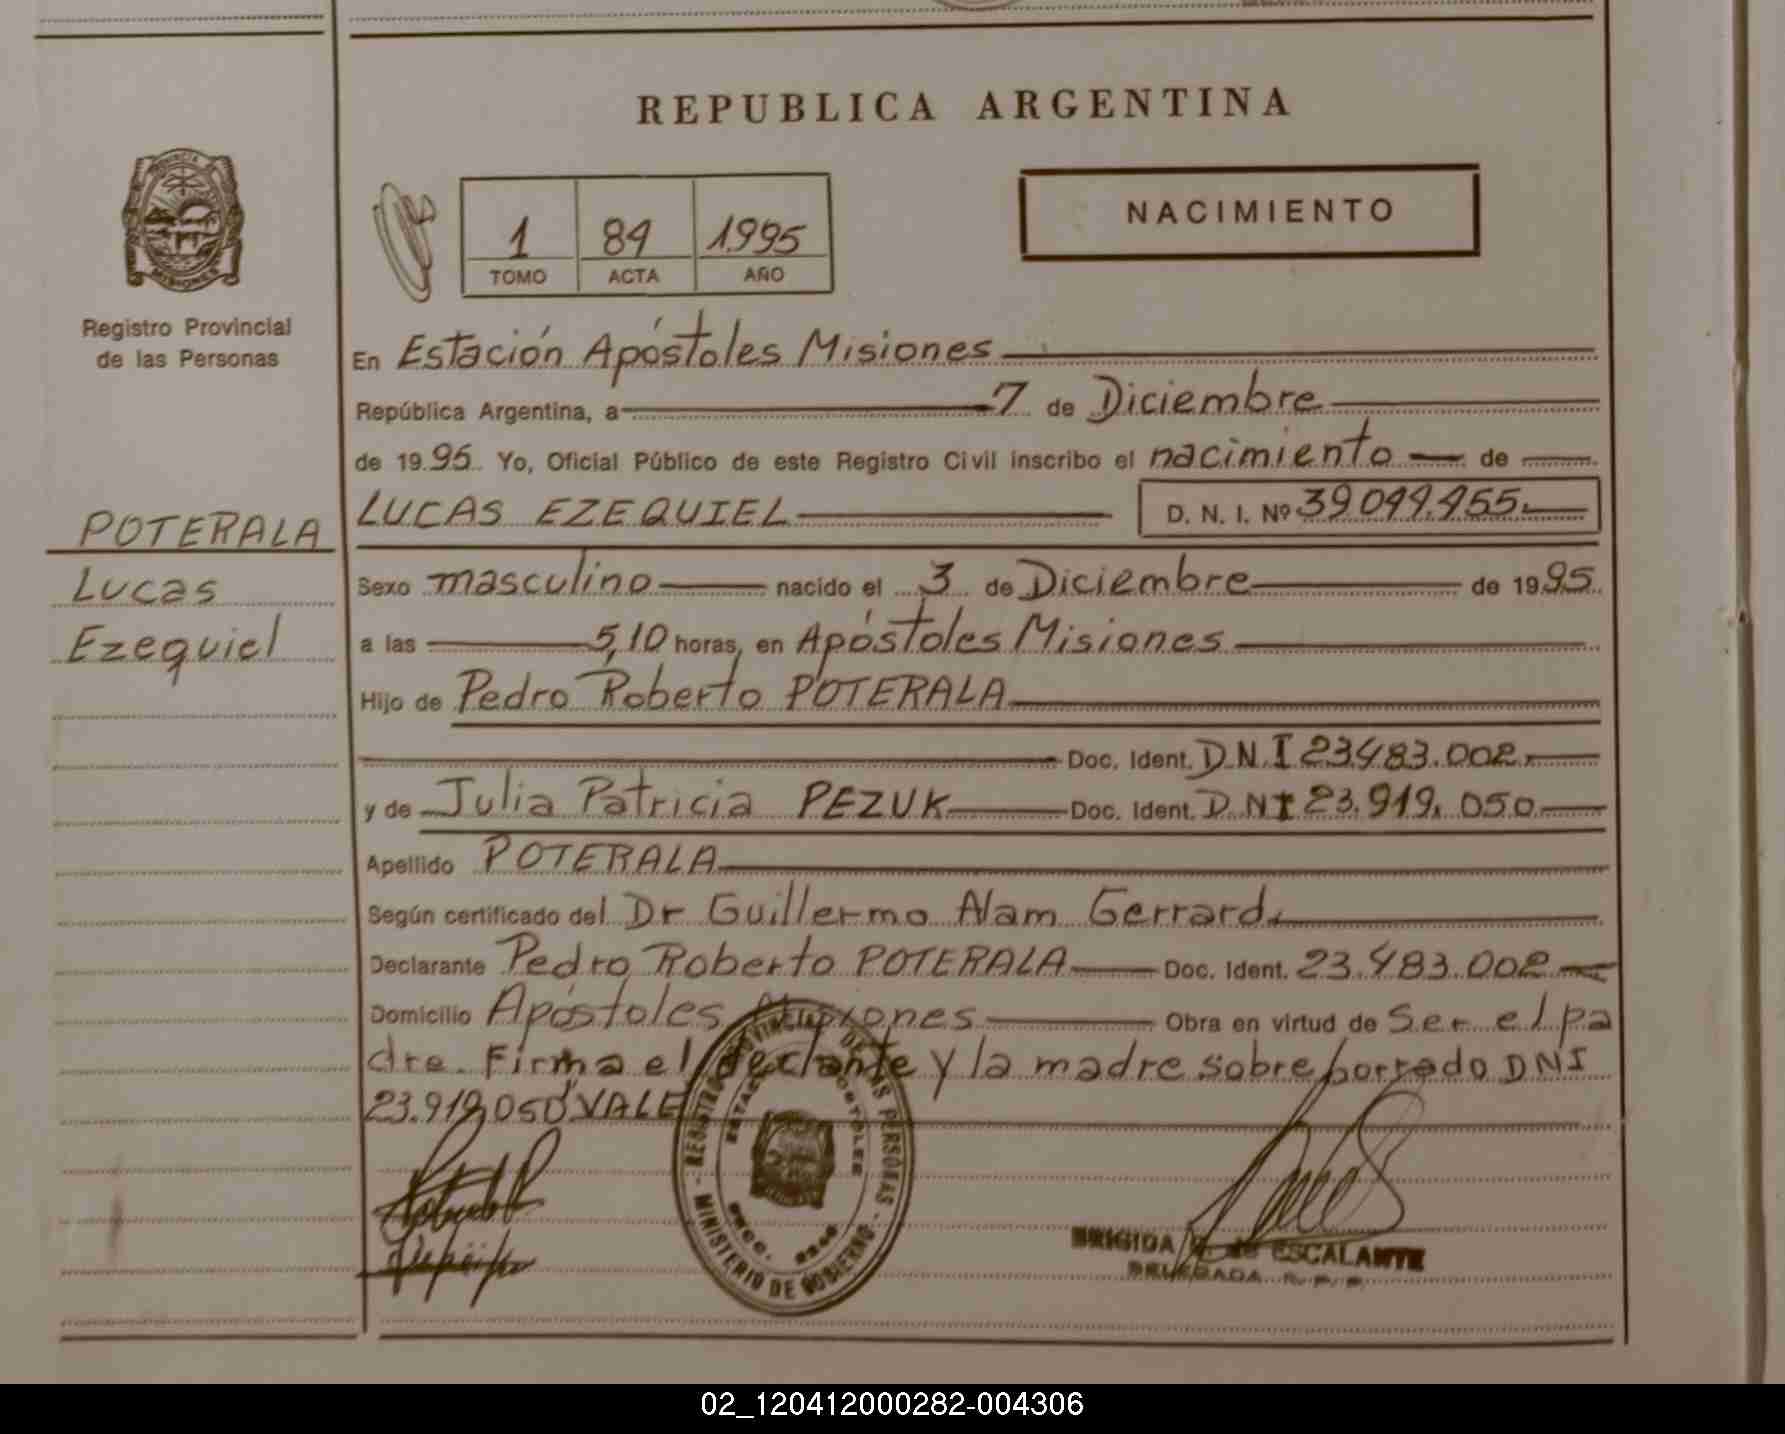 REPUBLICA ARGENTINA
PROVINCIA
MISIONES
Registro Provincial
de las Personas
1 84 1995
TOMO ACTA AÑO
NACIMIENTO
En Estación Apóstoles Misiones
República Argentina, a 7 de Diciembre
de 1995 Yo, Oficial Público de este Registro Civil inscribo el nacimiento de
POTERALA
Lucas
Ezequiel
LUCAS EZEQUIEL D. N. I. Nº 39.044.455.
Sexo masculino nacido el 3 de Diciembre de 1995
a las 5,10 horas, en Apóstoles Misiones
Hijo de Pedro Roberto POTERALA
Doc. Ident. D.N.I 23.483.002.
y de Julia Patricia PEZUK Doc. Ident. D.N.I 23.919.050
Apellido POTERALA
Según certificado del Dr Guillermo Alam Gerrard.
Declarante Pedro Roberto POTERALA Doc. Ident. 23.483.002
Domicilio Apóstoles Misiones Obra en virtud de Ser el pa
dre. Firma el declante y la madre sobre borrado DNI
23.919.050 VALE
REGISTRO PROVINCIAL DE LAS PERSONAS
MINISTERIO DE GOBIERNO
BRIGIDA de ESCALANTE
DELEGADA R. P. P.
02_120412000282-004306